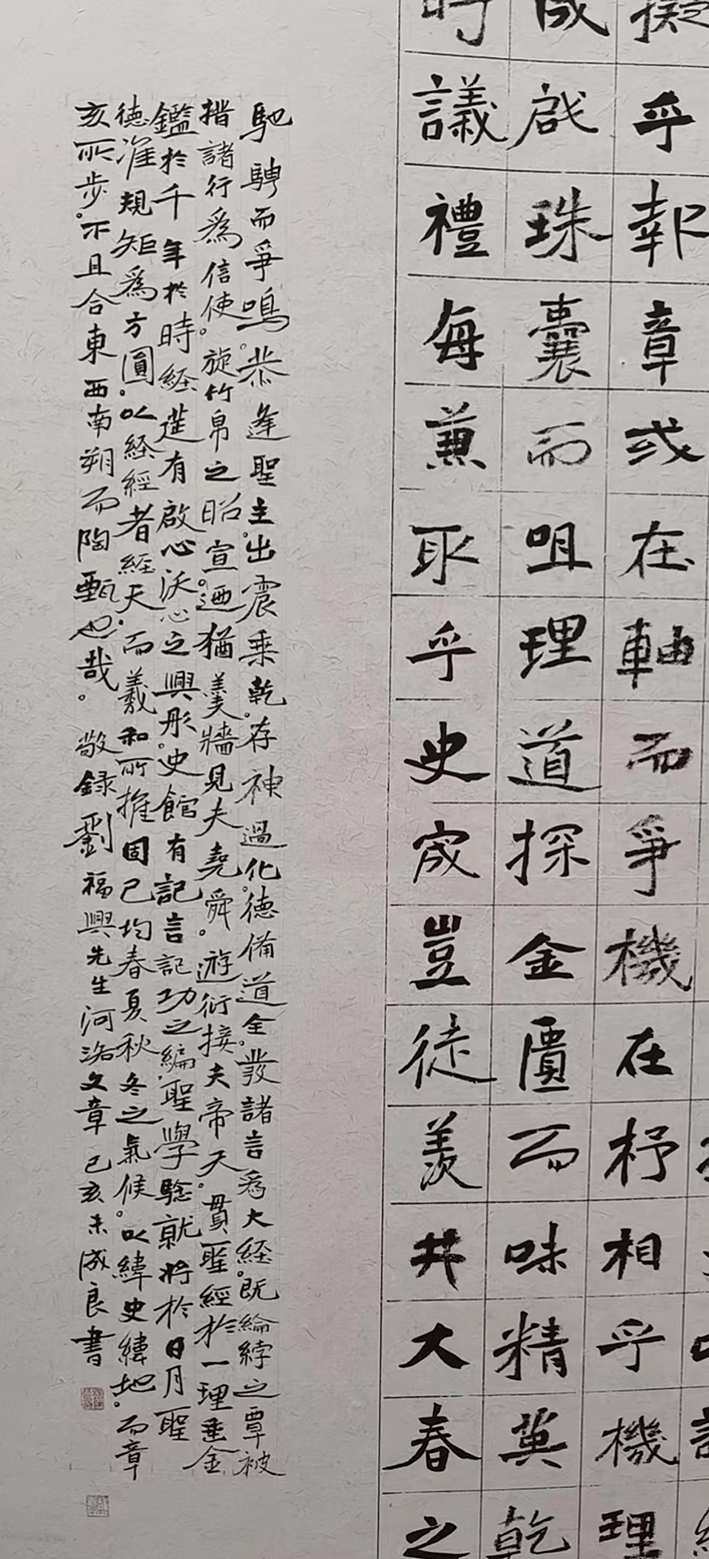 擬乎報章或在軸而爭機在杼相乎機理
成啟珠囊而咀理道探金匱而味精英乾
時議禮每兼取乎史宬豈徒羨井大春之
馳騁而爭鳴。恭逢聖主出震乘乾。存神過化。德備道全。發諸言為大經。既綸綍之覃被
措諸行為信使。旋竹帛之昭宣。迺猶羹牆見夫堯舜。游衍接夫帝天。貫聖經於一理垂金
鑑於千年於時經筵有啟心沃心之興彤史館有記言記功之編聖學騐就將於日月聖
德准規矩為方圓。以経經者經天。而羲和所推固已均春夏秋冬之氣候。以緯史緯地。而章
亥所步。不且合東西南朔而陶甄也哉。敬錄劉福興先生河洛文章己亥末成良書